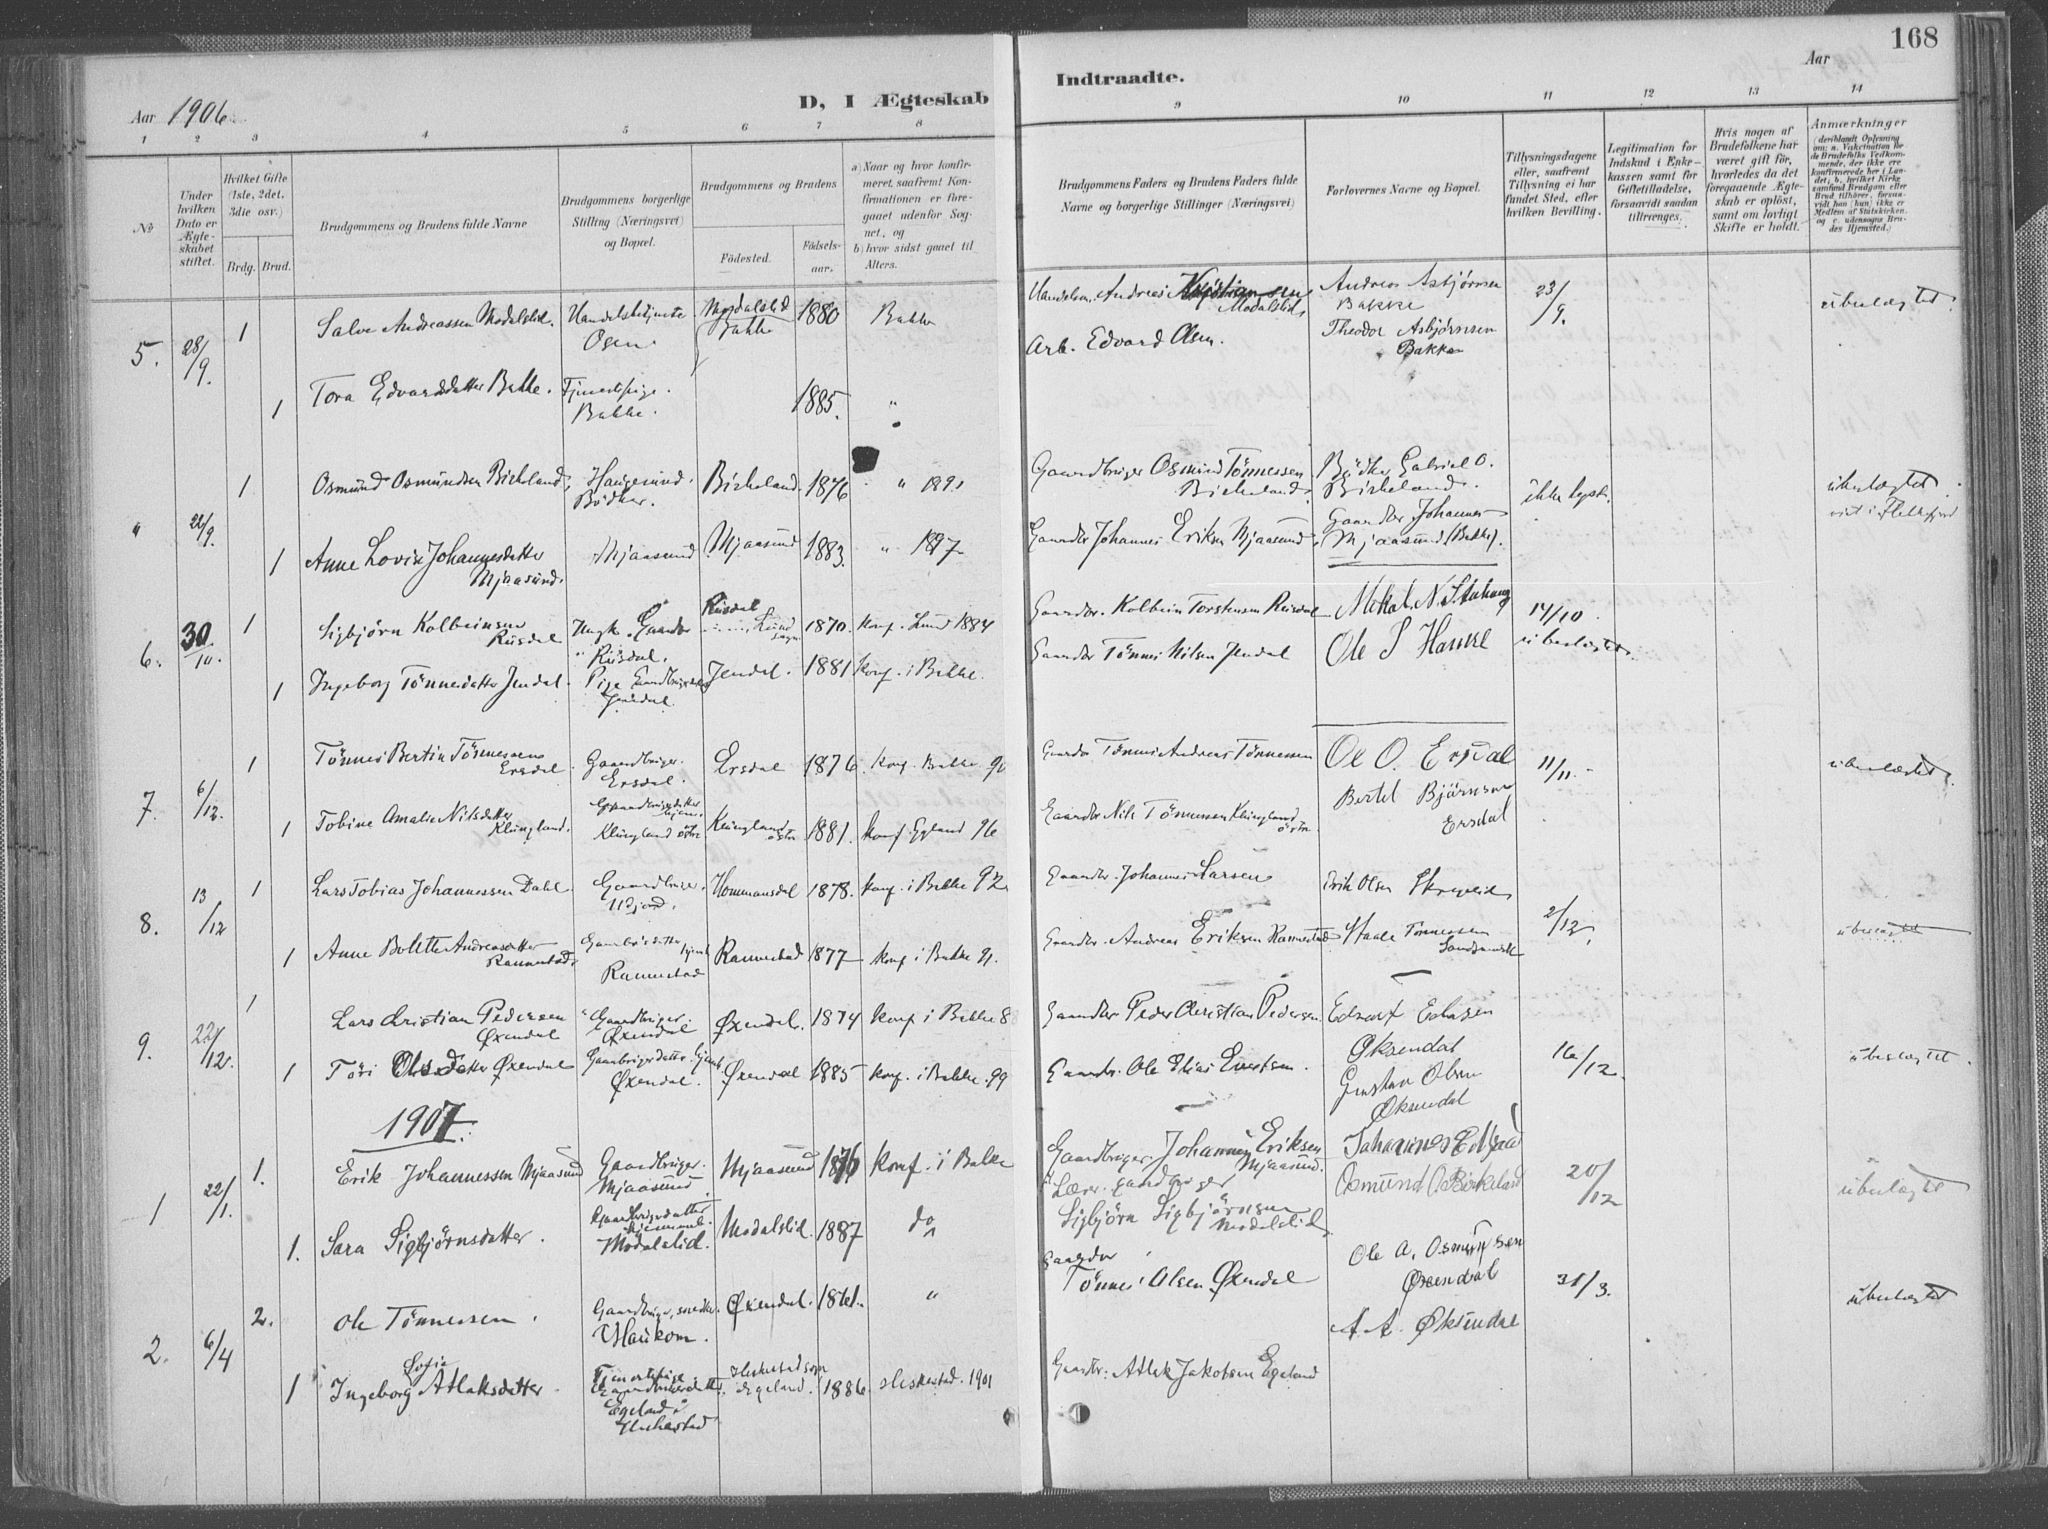 168
Aar 1906.
D, I Ægteskab
Indtraadte.
Aar
1 2 3 4 5 6 7 8
9 10 11 12 13 14
No
Under hvilken Dato er Ægteskabet stiftet.
Hvilket Gifte (1ste, 2det, 3die osv.)
Brdg. Brud.
Brudgommens og Brudens fulde Navne
Brudgommens borgerlige Stilling (Næringsvei) og Bopæl.
Brudgommens og Brudens
Födested.
Födselsaar.
a) Naar og hvor konfirmeret, saafremt Konfirmationen er foregaaet udenfor Sognet, og
b) hvor sidst gaaet til Alters.
Brudgommens Faders og Brudens Faders fulde Navne og borgerlige Stillinger (Næringsvei)
Forlovernes Navne og Bopæl.
Tillysningsdagene eller, saafremt Tillysning ei har fundet Sted, efter hvilken Bevilling.
Legitimation for Indskud i Enkekassen samt for Giftetilladelse, forsaavidt saadan tiltrænges.
Hvis nogen af Brudefolkene har været gift för, hvorledes da det foregaaende Ægteskab er oplöst, samt om lovligt Skifte er holdt.
Anmærkninger
5. 28/9. 1 Salve Andreassen Modalslid. Handelsbetjente Osen. Modalslid Bakke 1880 Bakke
Handelsm. Andreas Modalslid Andreas Asbjørnsen Bakke 23/9. ubeslægtet.
1 Tora Edvardsdatter Bakke. Tjenestpige. Bakke. 1885. "
Arb. Edvard Olsen. Theodor Asbjørnsen Bakke
" 28/9. 1 Osmund Osmundsen Birkeland, Haugesund. Bödker. Birkeland 1876 " 1891
Gaardbruger Osmund Tönnessen Birkeland. Bödker Gabriel O. Birkeland. ikke lyst. ubeslægtet. viet i Flekkefjord
1 Anne Lovise Johannesdatter Mjaasund. Mjaasund Mjaasund 1883. " 1897
Gaardbr Johannes Eriksen Mjaasund. Gaardbr. Johannes Mjaasund (Bakke).
6. 30/10. 1 Sigbjörn Kolbeinsen Rusdal Ungk. Gaardbr Rusdal. Rusdal Lund sogn 1870. konf. Lund 1884
Gaardbr. Kolbein Torstensen Rusdal 14/10
1 Ingeborg Tönnesdatter Jendal. Pige Gaardbrugerdatter Jendal Jendal. 1881 konf. i Bakke.
Gaardbr Tönnes Nilsen Jendal Ole S Hamre ubeslægtet.
7. 6/12. 1 Tönnes Bertin Tönnessen Ersdal. Gaardbruger. Ersdal. Ersdal 1876. konf. Bakke 90
Gaardbr Tönnes Andreas Tönnessen Ole O. Ersdal 11/11. ubeslægtet.
1 Tobine Amalie Nilsdatter Klungland. Gaardbrugerdatter hjem. Klungland östre Klungland östre 1881. konf. Egland 96
Gaardbr Nils Tönnessen Klungland östre Bertel Björnsen Ersdal
8. 13/12 1 Lars Tobias Johannessen Dahl. Gaardbruger. Hommansdal 1878. konf. i Bakke 92
Gaardbr. Johannes Larsen Erik Olsen 2/12. ubeslægtet
1 Anne Bolette Andreasdatter Rannestad. Gaardbr's datter Rannestad Rannestad 1877 konf. i Bakke 91.
Gaardbr. Andreas Eriksen Rannestad Staale Tönnessen
9. 22/12. 1 Lars Christian Pedersen Øxendal " Gaardbruger. Øxendal Øxendal. 1874 konf. i Bakke 8
Gaardbr Peder Christian Pedersen. Øksendal 16/12. ubeslægtet.
1 Tori Olsdatter Øxendal Gaardbrugerdatter. Øxendal. Øxendal 1885 konf. i Bakke. 99
Gaardbr. Ole Elias Gustav Olsen Øksendal
1907.
1 22/1. 1. Erik Johannessen Mjaasund Gaardbruger. Mjaasund. Mjaasund 1876 konf. i Bakke
Gaardbruger. Johannes Eriksen Mjaasund. 20/12 ubeslægtet
1. Sara Sigbjörnsdatter. Gaardbrugerdatter hjemme. Modalslid. Modalslid. 1887 do
Lærer. gaardbruger Sigbjörn Sigbjörnsen Modalslid Osmund O. Birkeland
2. 6/4 2. Ole Tönnessen. Gaardbruger, snedker. Haukom. Øxendal. 1861. "
Gaardbr Tönnes Olsen Øxendal Ole A. Osmundsen Øxendal 31/3. ubeslægtet
1 Ingeborg Sofie Atlaksdatter Tjenestpige Gaardbrugerdatter. Egeland i Heskestad Heskestad sogn Egeland. 1886 Heskestad. 1901
Gaardbr. Atlak Jakobsen Egeland A. A. Øksendal